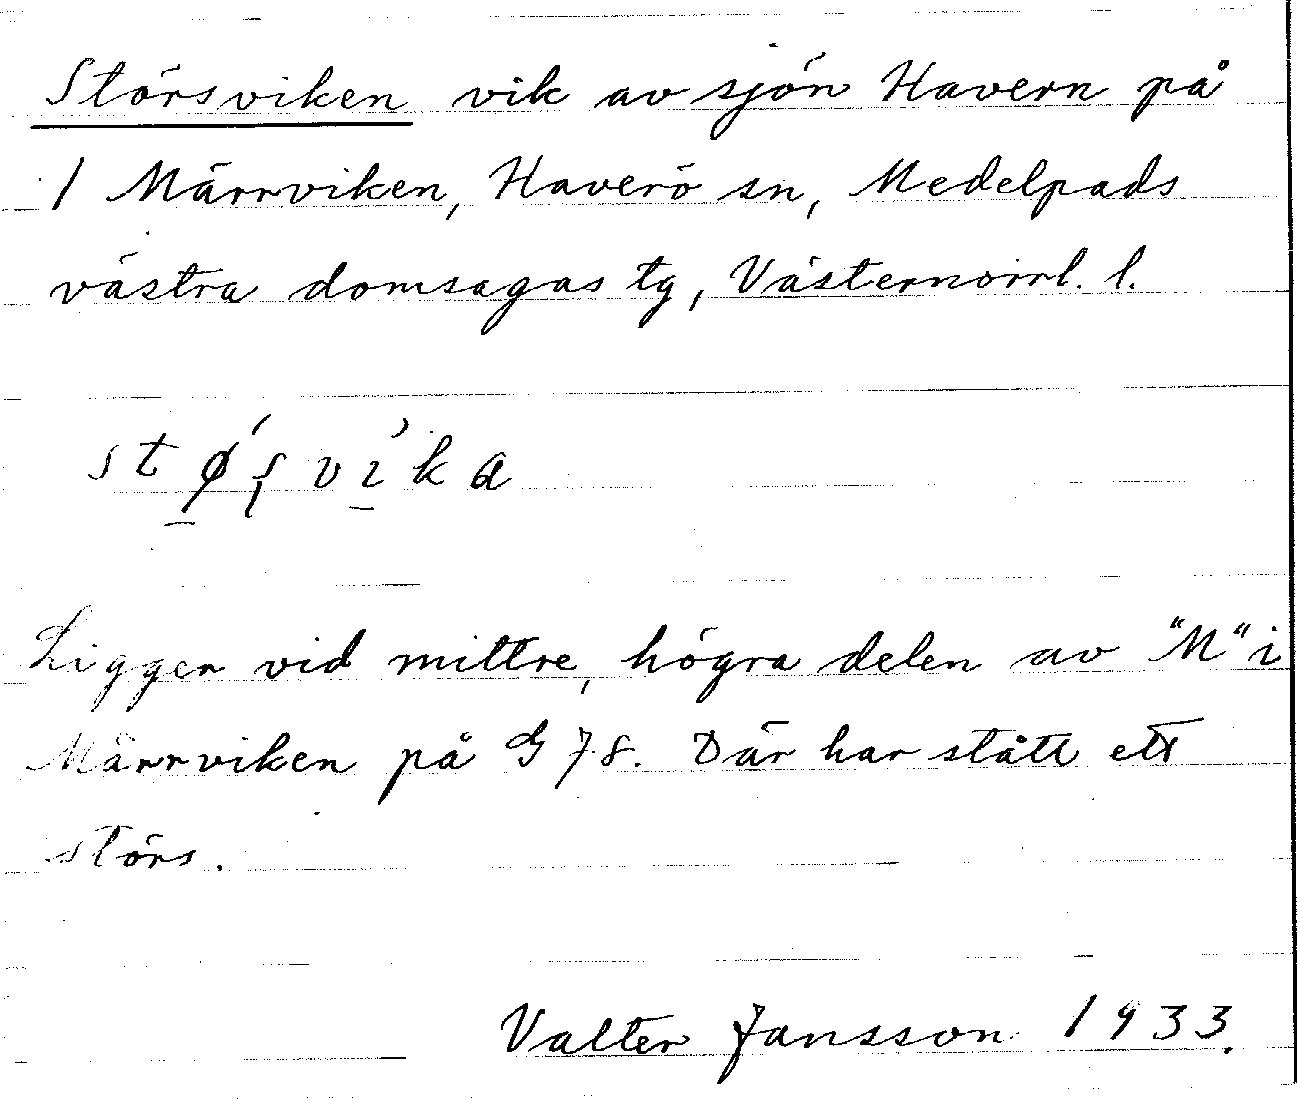 Störsviken vik av sjön Havern på
1 Märrviken, Haverö sn, Medelpads
västra domsagas tg, Västernorrl. l.
Ligger vid mittre, högra delen av "M" i
Märrviken på G 78. Där har stått ett
störs.
Valter Jansson 1933.